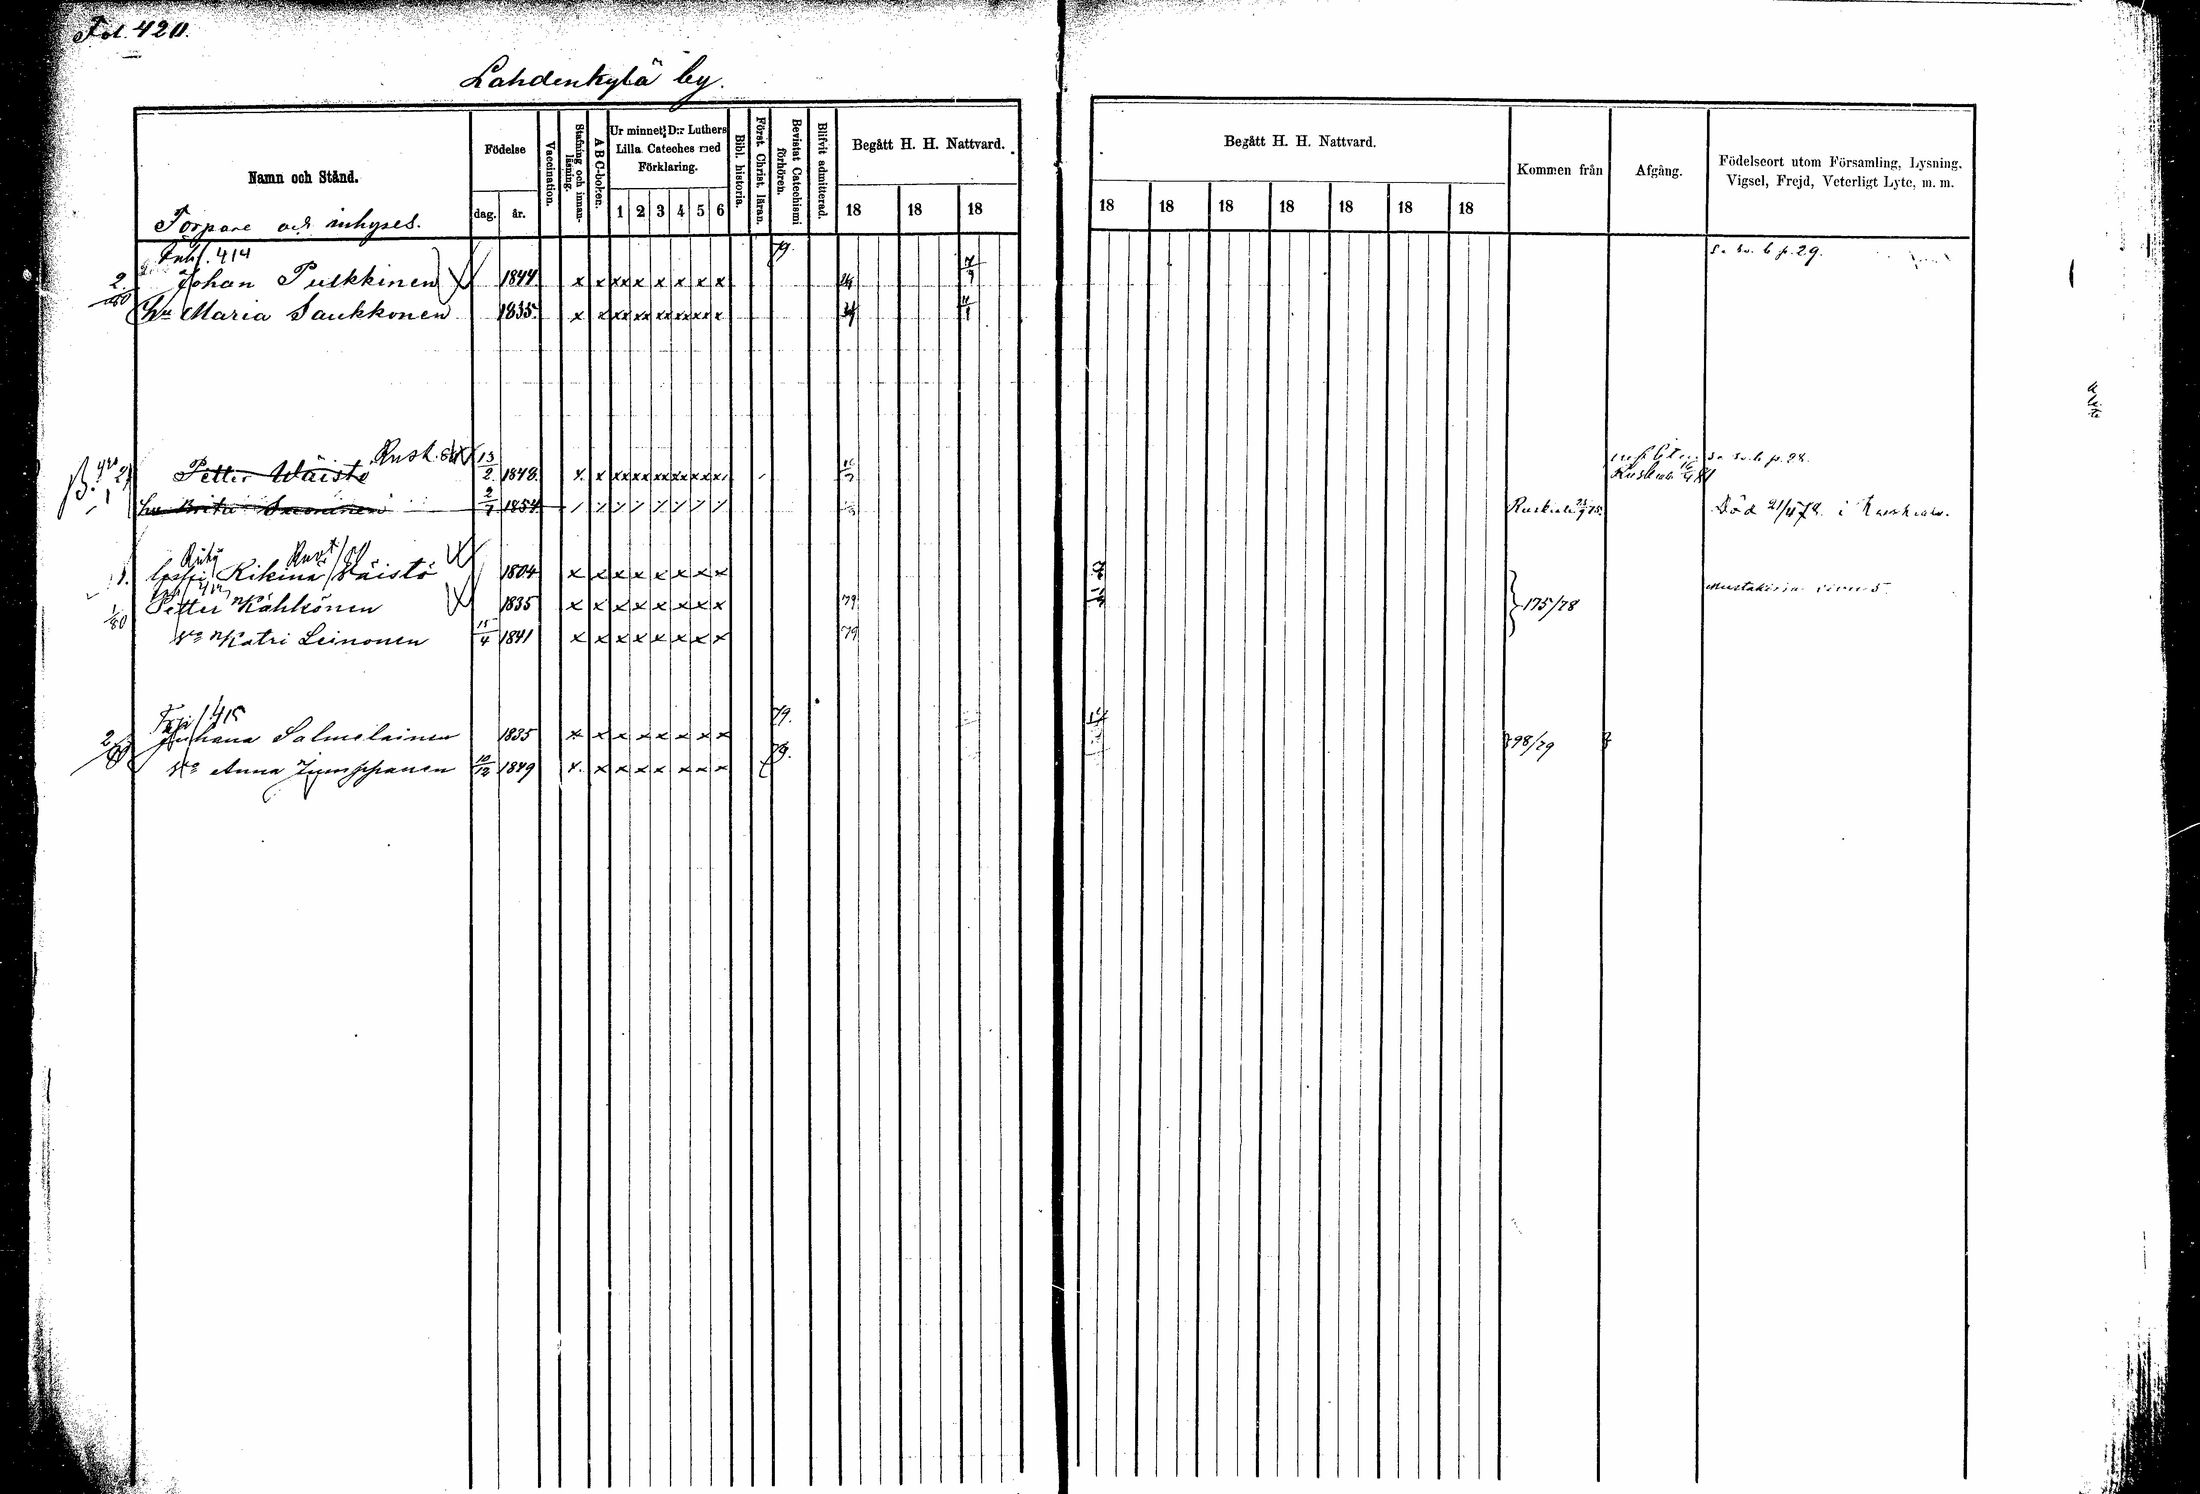 Fol. 420.
Lahdenkylä by.
Namn och Stånd.
Torpare och inhyses.
Födelse
dag. år.
Vaccination.
Stafning och innanläsning.
A B C-boken.
Ur minnet: D:r Luthers Lilla Cateches med Förklaring.
1 2 3 4 5 6
Bibl. historia.
Först. Christ. läran.
Bevistat Catechismi förhören.
Blifvit admitterad.
Begått H. H. Nattvard.
18 18 18
Begått H. H. Nattvard.
18 18 18 18 18 18 18
Kommen från
Afgång.
Födelseort utom Församling, Lysning. Vigsel, Frejd, Veterligt Lyte, m. m.
Inh. 414 79.
2. Johan Pulkkinen 1844 x x xx x x x x x 7/9 p. 29.
hu Maria Saukkonen 1835. x x xx xx xx xx xx x
Petter Wäistö Rusk. 13/2 1848. x. x xx xx xx xx xx x
hu Brita 2/7 1854 Död 21/4 78. i
1. Rikina Väistö 1804 x x x x x x x x
1/80 Petter Kähkönen 1835 x x x x x x x x 79 175/78
Katri Leinonen 15/4 1841 x x x x x x x x 79
415 79.
Juhana Salmelainen 1835 x x x x x x x x 98/79
Anna Jumppanen 10/12 1849 x. x x x x x x x 79.